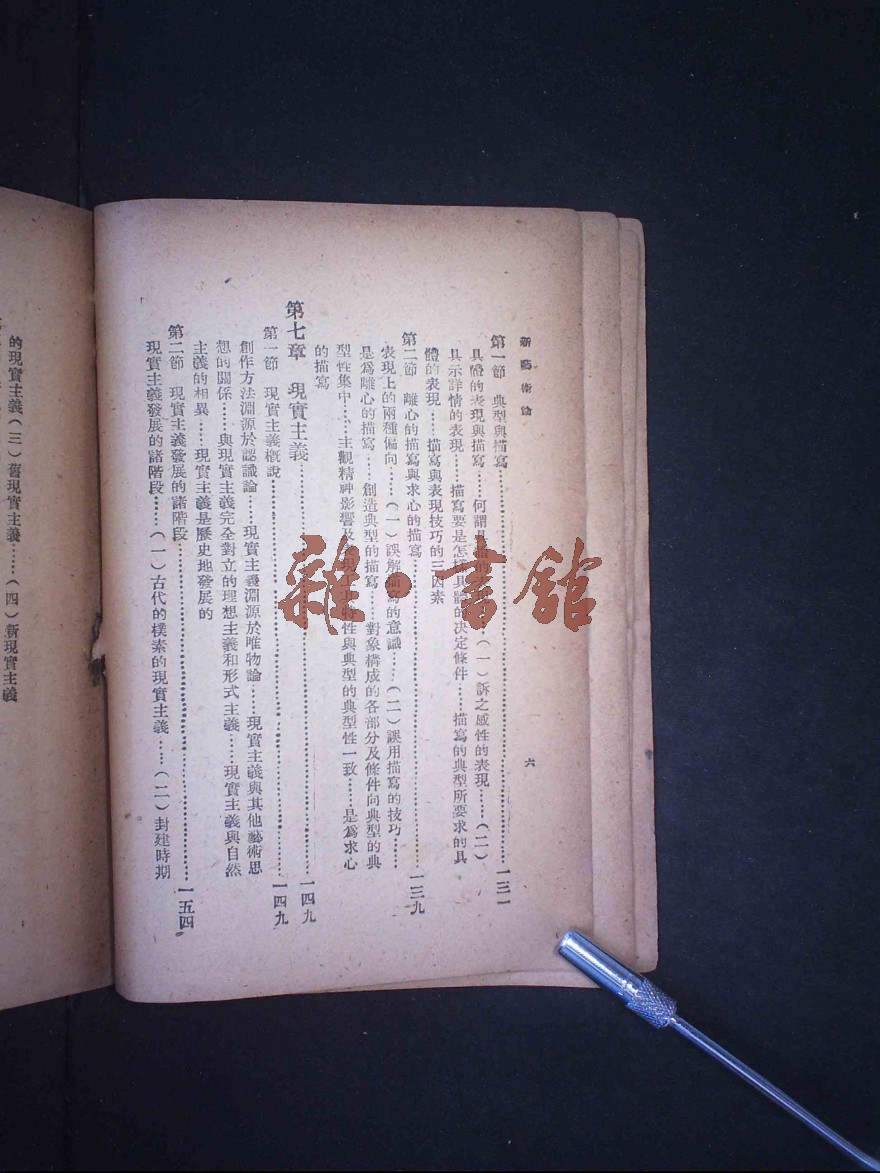 新藝術論
六
第一節 典型與描寫……一三一
具體的表現與描寫……何謂具體的表現……(一)訴之感性的表現……(二)
具示詳情的表現……描寫要是怎樣具體的決定條件……描寫的典型所要求的具
體的表現……描寫與表現技巧的三因素
第二節 離心的描寫與求心的描寫……一三九
表現上的兩種偏向……(一)誤解描寫的意識……(二)誤用描寫的技巧……
是爲離心的描寫……創造典型的描寫……對象構成的各部分及條件向典型的典
型性集中……主觀精神影響及 特性與典型的典型性一致……是爲求心
的描寫
第七章 現實主義……一四九
第一節 現實主義概說……一四九
創作方法淵源於認識論……現實主義淵源於唯物論……現實主義與其他藝術思
想的關係……與現實主義完全對立的理想主義和形式主義……現實主義與自然
主義的相異……現實主義是歷史地發展的
第二節 現實主義發展的諸階段……一五四
現實主義發展的諸階段……(一)古代的樸素的現實主義……(二)封建時期
的現實主義(三)舊現實主義……(四)新現實主義
雜·書館